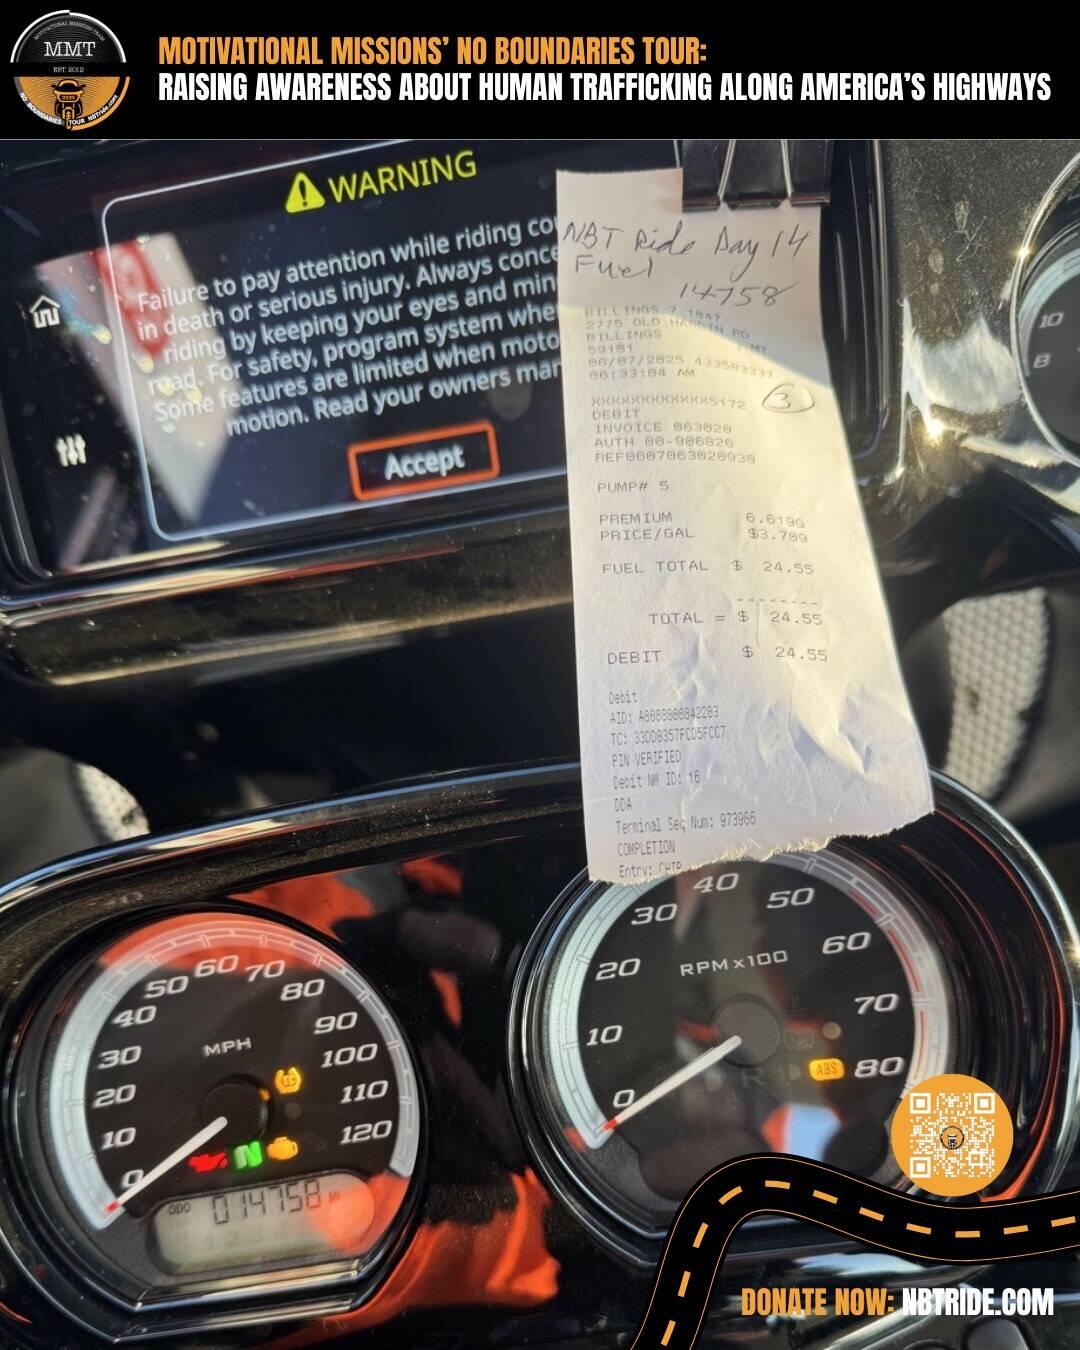 MOTIVATIONAL MISSIONS TEAM
MMT
EST. 2012
2025
NO BOUNDARIES TOUR NBTride.com
MOTIVATIONAL MISSIONS’ NO BOUNDARIES TOUR:
RAISING AWARENESS ABOUT HUMAN TRAFFICKING ALONG AMERICA’S HIGHWAYS
WARNING
Failure to pay attention while riding
in death or serious injury. Always
riding by keeping your eyes and
road. For safety, program system
Some features are limited when
motion. Read your owners
Accept
NBT Ride Day 14
Fuel
14758
BILLINGS 7 1847
2775 OLD HARDIN RD
BILLINGS MT
59101
06/07/2025 433503337
06:33:04 AM
3
XXXXXXXXXXXX5172
DEBIT
INVOICE 063020
AUTH 00-906826
REF0607063020930
PUMP# 5
PREMIUM 6.619G
PRICE/GAL $3.709
FUEL TOTAL $ 24.55
TOTAL = $ 24.55
DEBIT $ 24.55
Debit
AID: A0000980842203
TC: 33DD8357FCD5FCC7
PIN VERIFIED
Debit NW ID: 16
DDA
Terminal Seq Num: 973966
COMPLETION
Entry: CHIP
10
8
0 10 20 30 40 50 60 70 80 90 100 110 120
MPH
N
ODO 014758 MI
0 10 20 30 40 50 60 70 80
RPM x100
ABS
DONATE NOW: NBTRIDE.COM